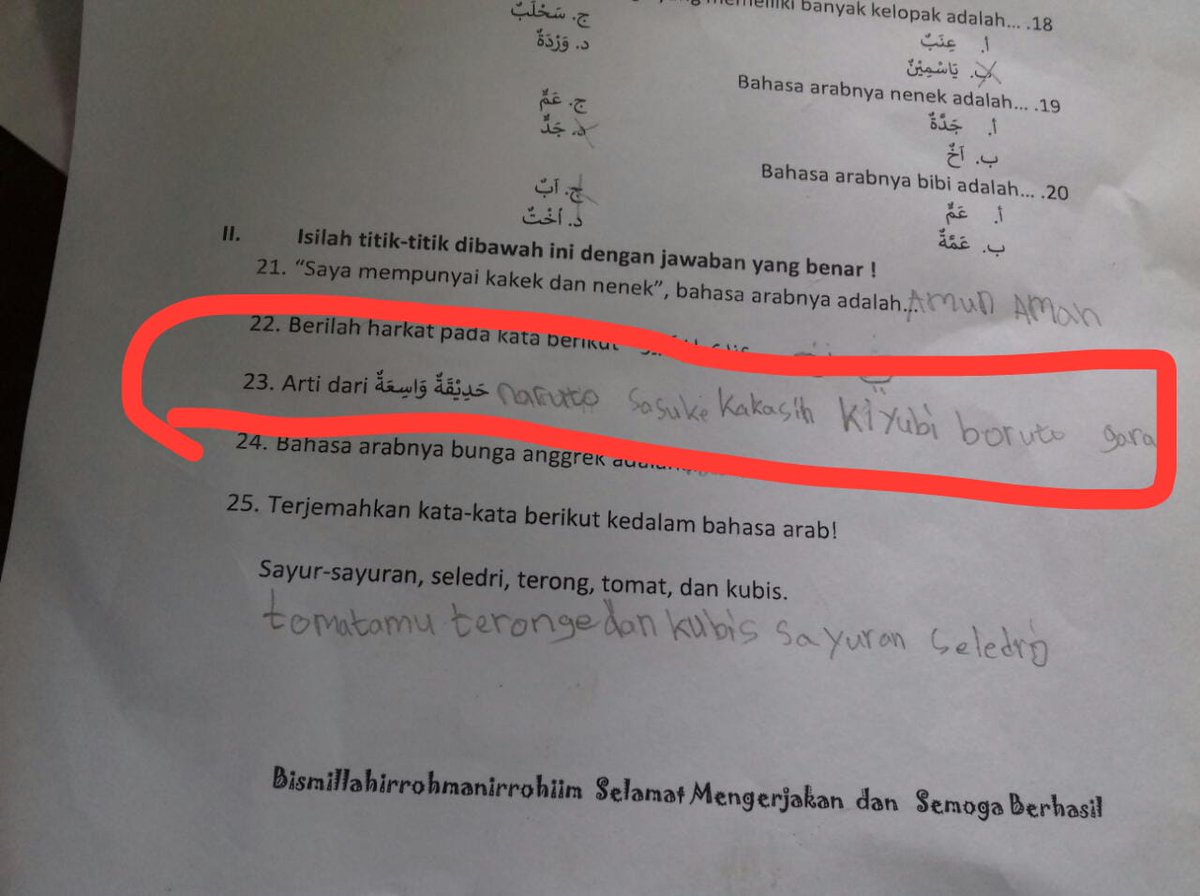 banyak kelopak adalah... .18
أ. عِنَبٌ
ج. سَحْلَبٌ
ب. يَاسْمِيْنٌ
د. وَرْدَةٌ
Bahasa arabnya nenek adalah... .19
أ. جَدَّةٌ
ج. عَمٌّ
ب. اَخٌ
د. جَدٌّ
Bahasa arabnya bibi adalah... .20
أ. عَمٌّ
ج. اَبٌ
ب. عَمَّةٌ
د. اُخْتٌ
II. Isilah titik-titik dibawah ini dengan jawaban yang benar !
21. “Saya mempunyai kakek dan nenek”, bahasa arabnya adalah... Amun AMah
22. Berilah harkat pada kata berikut
23. Arti dari حَدِيْقَةٌ وَاسِعَةٌ naruto sasuke kakasih kiyubi boruto gara
24. Bahasa arabnya bunga anggrek adalah
25. Terjemahkan kata-kata berikut kedalam bahasa arab!
Sayur-sayuran, seledri, terong, tomat, dan kubis.
tomatamu teronge dan kubis sayuran seledri
Bismillahirrohmanirrohiim Selamat Mengerjakan dan Semoga Berhasil